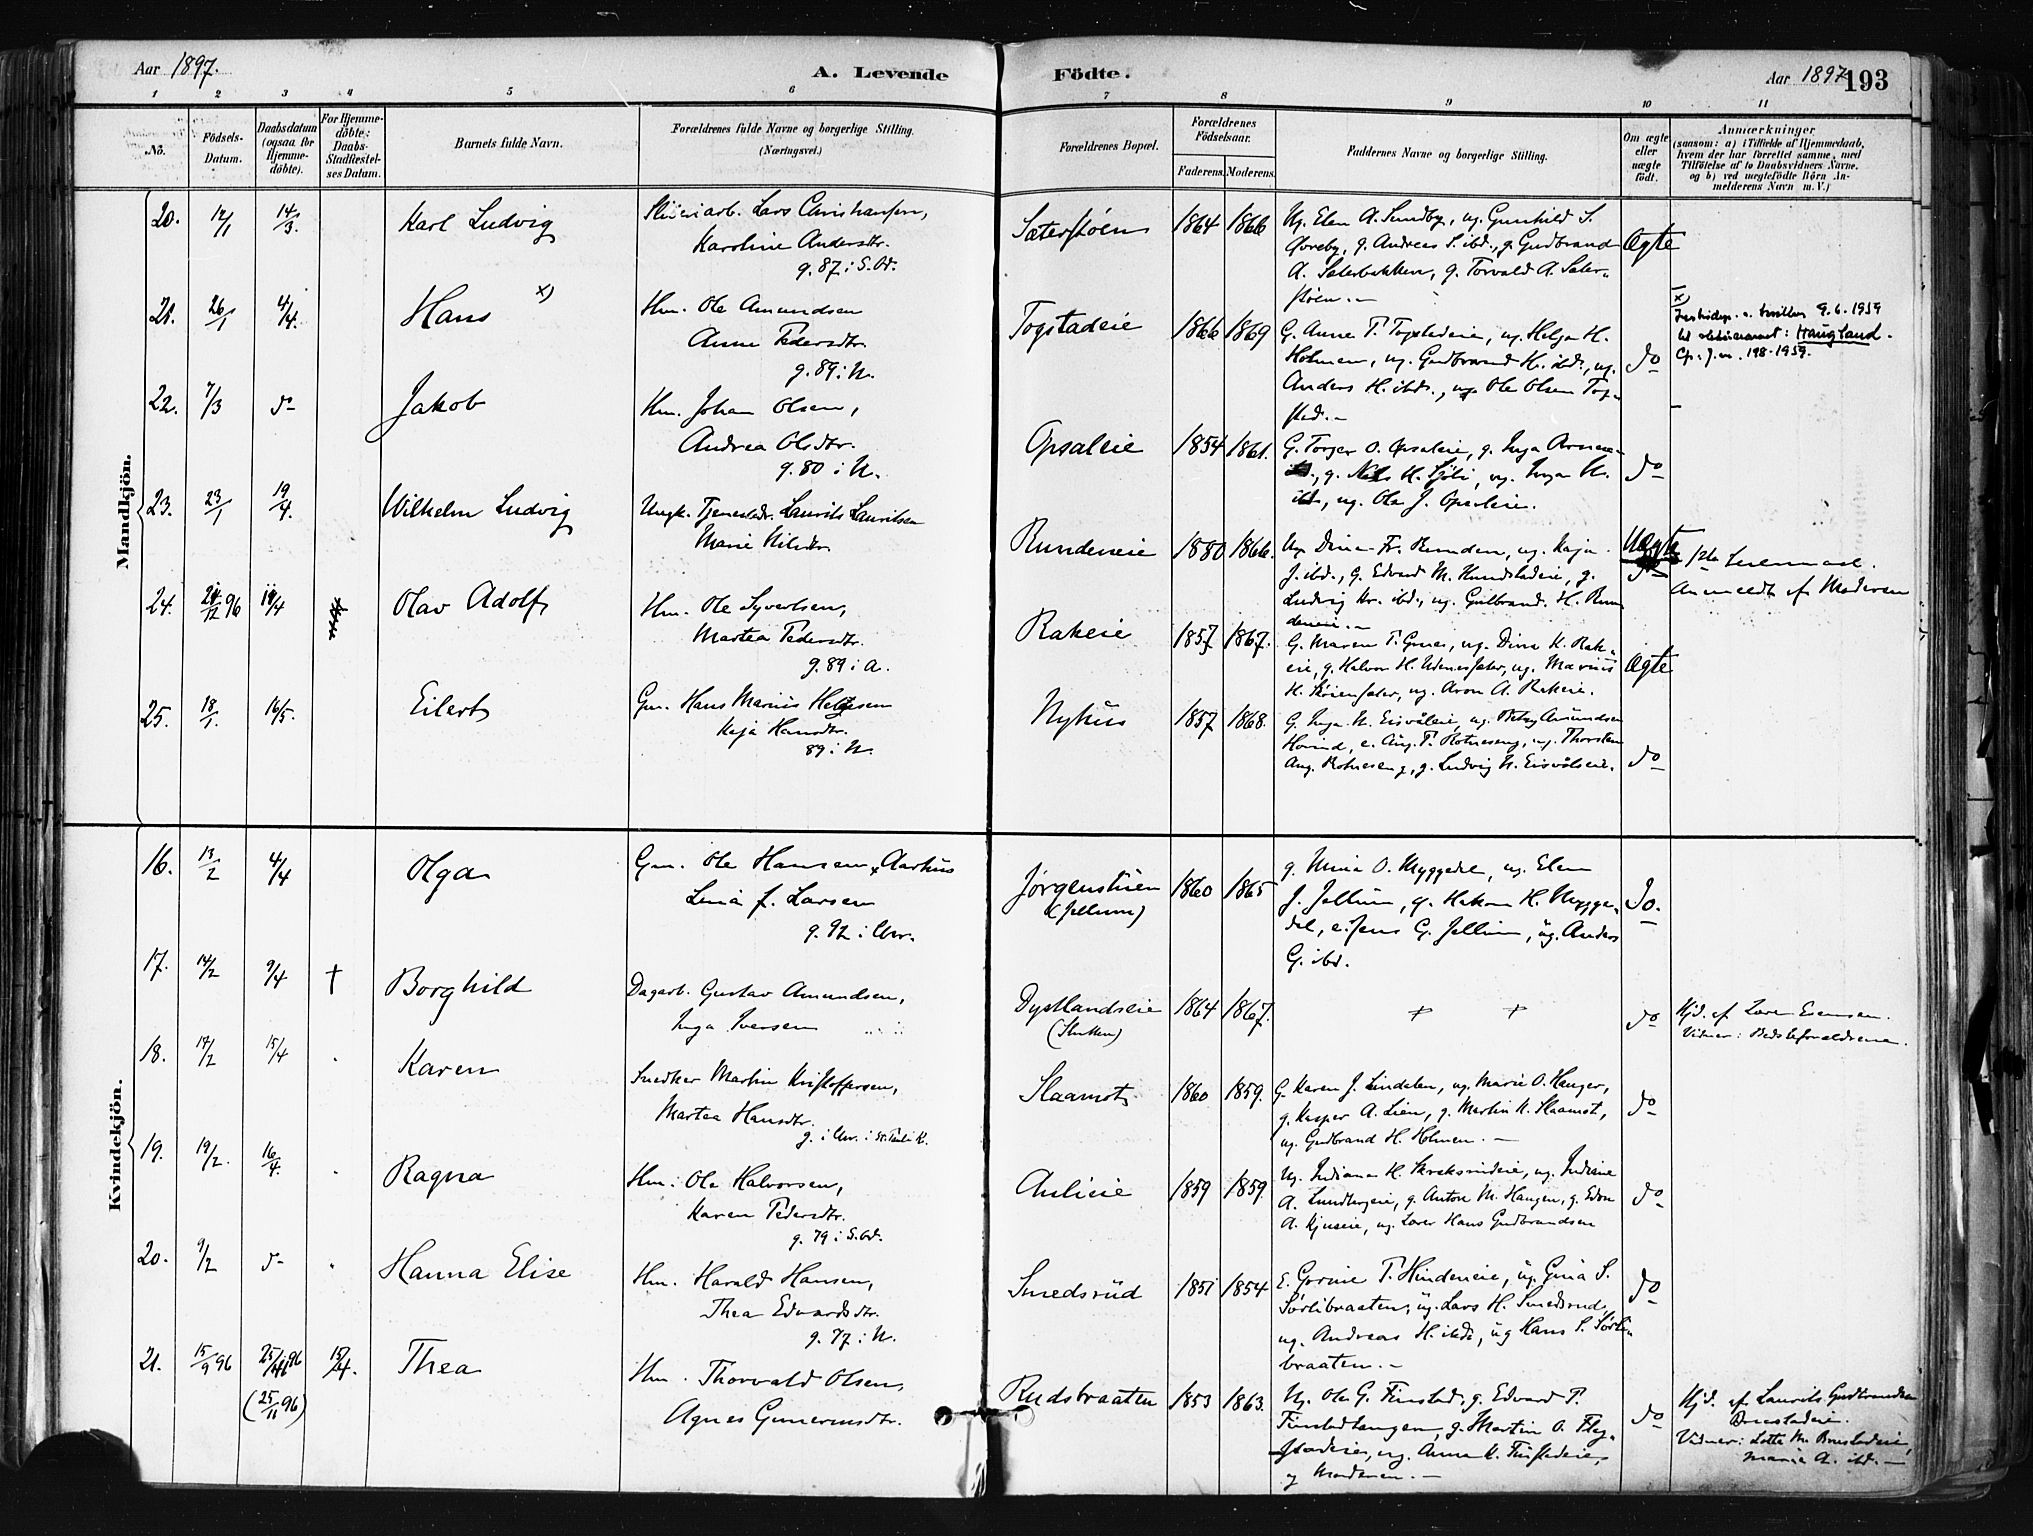 Aar 1897.
A. Levende Födte.
Aar 1897 193
1 2 3 4 5 6 7 8 9 10 11
No.
Födsels-Datum.
Daabsdatum (ogsaa for Hjemme-döbte).
For Hjemme-döbte: Daabs-Stadfæstel-ses Datum.
Barnets fulde Navn.
Forældrenes fulde Navne og borgerlige Stilling. (Næringsvei.)
Forældrenes Bopæl.
Forældrenes Födselsaar.
Faderens. Moderens.
Faddernes Navne og borgerlige Stilling.
Om ægte eller uægte födt.
Anmærkninger
(saasom: a) i Tilfælde af Hjemmedaab, hvem der har forrettet samme, med Tilföielse af to Daabsvidners Navne. og b) ved uægtefödte Börn An-melderens Navn m. V.)
Mandkjön.
20. 12/1 14/3. Karl Ludvig
Lars Christiansen,
Karoline Andersdtr.
g. 87 i S. Od.
Sæterstøen 1864 1866
Ug. Elen A. Sundby, ug. Gunhild S.
Øvreby, g. Andreas S. ibd., g. Gudbrand
A. Sæterbakken, g. Torvald A. Sæter-
støen.-
Ægte
21. 26/1 4/4. Hans x)
Hm. Ole Amundsen
Anne Pedersdtr.
g. 89 i N.
Togstadeie 1866 1869
G. Anne T. Togstadeie, ug. Helga H.
Holmen, ug. Gudbrand H. ibd., ug.
Anders H. ibd., ug Ole Olsen Tog-
stad.-
do
x)
9.6.1959
Haugland.
J.nr. 198-1959.
22. 7/3 do Jakob
Hm. Johan Olsen,
Andrea Olsdtr.
g. 80 i N.
Opsaleie 1854 1861.
G. Torger O. Opsaleie, g. Inga
g. Nils H. Sjøli, ug. Inga H.
ibd, ug. Ole J. Opsaleie.
do
23. 23/1 19/4. Wilhelm Ludvig
Ungk. Tjenestedr. Laurits Lauritsen
Marie Nilsdtr
Rundeneie 1880 1866.
Ug. Dina Fr. Runden, ug. Kaja
J. ibd., G. Edvard M. Hundstadeie, g.
Ludvig Kr. ibd., ug. Gulbrand H. Run
deneie.-
Uægte
Anmeldt af Moderen
24. 24/12 96 19/4 Olav Adolf
Hm. Ole Syvertsen,
Martea Pedersdtr.
g. 89 i A.
Rakeie 1857 1867.
G. Maren T. Grues, ug. Dina K. Rak-
eie, g. Halvor H. Udenessæter, ug. Marius
H. ug. Aron A. Rakeie.
Ægte
25. 18/1. 16/5. Eilert
Gm. Hans Marius Helgesen
Kaja Hansdtr.
89 i N.
Nyhus 1857 1868.
G. Inga N. Eisvåleie, ug. Betsy Amundsen
Hovind, e. Aug. P. Rotneseng, ug. Thorsten
Aug. Rotneseng, g. Ludvig N. Eisvåleie.
do
Kvindekjön.
16. 13/2 4/4 Olga
Gm. Ole Hansen x Aarhus
Lina f. Larsen
g. 92 i Chr.
Jørgenstuen (Jellum) 1860 1865
g. Mina O. Myggedel, ug. Elen
J. Jellum, g. Hakon H. Mygge-
del, e. Jens G. Jellum, ug. Anders
G. ibd.
Do.
17. 14/2 9/4 † Borghild
Dagarb. Gustav Amundsen,
Inga Iversen
Dystlandseie 1864 1867.
† †
do
Hjd. af Lars Evensen.
Vidner: Bedsteforældrene.
18. 17/2 15/4 Karen
Snedker Martin Kristoffersen,
Martea Hansdtr.
g. i Chr. i St. Pauli K.
Slaamot 1860 1859.
G. Karen J. Lindalen, ug. Marie O. Hauger,
g. Kasper A. Lien, g. Martin K. Slaamot,
ug. Gudbrand H. Holmen.-
do
19. 19/2. 16/4. Ragna
Hm. Ole Halvorsen,
Karen Pedersdtr.
g. 79 i S. Od.
Aulieie 1859 1859.
Ug. Indiana H. ug. Indiane
A. Lundbergeie, g. Anton M. Haugen, g. Edv
A. Kjuseie, ug. Lærer Hans Gudbrandsen
do
20. 9/2 do Hanna Elise
Hm. Harald Hansen,
Thea Edvardsdtr.
g. 77 i N.
Smedsrud 1851 1854
E. Gorine T. Hindeneie, ug. Gina S.
Sørlibraaten, ug. Lars H. Smedsrud,
ug. Andreas H. ibd, ug Hans S. Sørli-
braaten.-
do
21. 15/9 96 (25/11 96) 15/4. Thea
Hm. Thorvald Olsen,
Agnes Gunerinsdtr.
Rudsbraaten 1853 1863.
Ug. Ole G. Finstad, g. Edvard P.
Finstadhaugen, g. Martin O. Flag-
stadeie, ug. Anna K. Finstadeie,
og Moderen.-
do
Hjd. af Laurits Gudbrandsen
Vidner: Lotte M.
Marie A. ibd.-